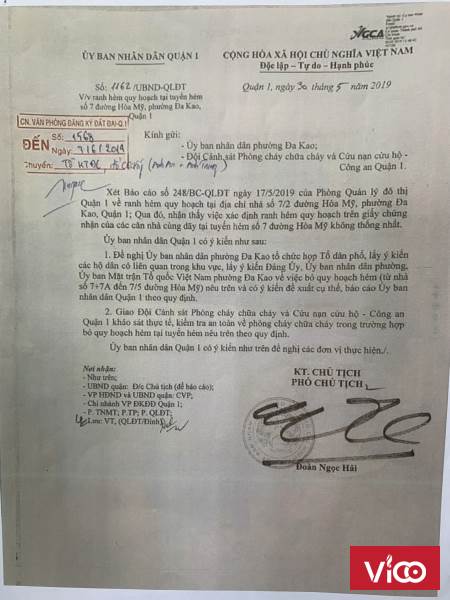 VGCA
ỦY BAN NHÂN DÂN QUẬN 1
CỘNG HÒA XÃ HỘI CHỦ NGHĨA VIỆT NAM
Độc lập – Tự do – Hạnh phúc
Số: 1162/UBND-QLĐT
Quận 1, ngày 30 tháng 5 năm 2019
V/v ranh hẻm quy hoạch tại tuyến hẻm
số 7 đường Hòa Mỹ, phường Đa Kao,
Quận 1
CN. VĂN PHÒNG ĐĂNG KÝ ĐẤT ĐAI-Q.1
ĐẾN
Số: 1568
Ngày: 7/6/2019
Chuyển:
Kính gửi:
- Ủy ban nhân dân phường Đa Kao;
- Đội Cảnh sát Phòng cháy chữa cháy và Cứu nạn cứu hộ -
Công an Quận 1.
Xét Báo cáo số 248/BC-QLĐT ngày 17/5/2019 của Phòng Quản lý đô thị
Quận 1 về ranh hẻm quy hoạch tại địa chỉ nhà số 7/2 đường Hòa Mỹ, phường Đa
Kao, Quận 1; Qua đó, nhận thấy việc xác định ranh hẻm quy hoạch trên giấy chứng
nhận của các căn nhà cùng dãy tại tuyến hẻm số 7 đường Hòa Mỹ không thống nhất.
Ủy ban nhân dân Quận 1 có ý kiến như sau:
1. Đề nghị Ủy ban nhân dân phường Đa Kao tổ chức họp Tổ dân phố, lấy ý kiến
các hộ dân có liên quan trong khu vực, lấy ý kiến Đảng Ủy, Ủy ban nhân dân phường,
Ủy ban Mặt trận Tổ quốc Việt Nam phường Đa Kao về việc bỏ quy hoạch hẻm (từ nhà
số 7+7A đến 7/5 đường Hòa Mỹ) nêu trên và có ý kiến đề xuất cụ thể, báo cáo Ủy ban
nhân dân Quận 1 theo quy định.
2. Giao Đội Cảnh sát Phòng cháy chữa cháy và Cứu nạn cứu hộ - Công an
Quận 1 khảo sát thực tế, kiểm tra an toàn về phòng cháy chữa cháy trong trường hợp
bỏ quy hoạch hẻm tại tuyến hẻm nêu trên theo quy định.
Ủy ban nhân dân Quận 1 có ý kiến như trên đề nghị các đơn vị thực hiện./.
Nơi nhận:
- Như trên;
- UBND quận: Đ/c Chủ tịch (để báo cáo);
- VP HĐND và UBND quận: CVP;
- Chi nhánh VP ĐKĐĐ Quận 1;
- P. TNMT; P.TP; P. QLĐT;
- Lưu: VT, (QLĐT/Đính)
KT. CHỦ TỊCH
PHÓ CHỦ TỊCH
Đoàn Ngọc Hải
Vicoo